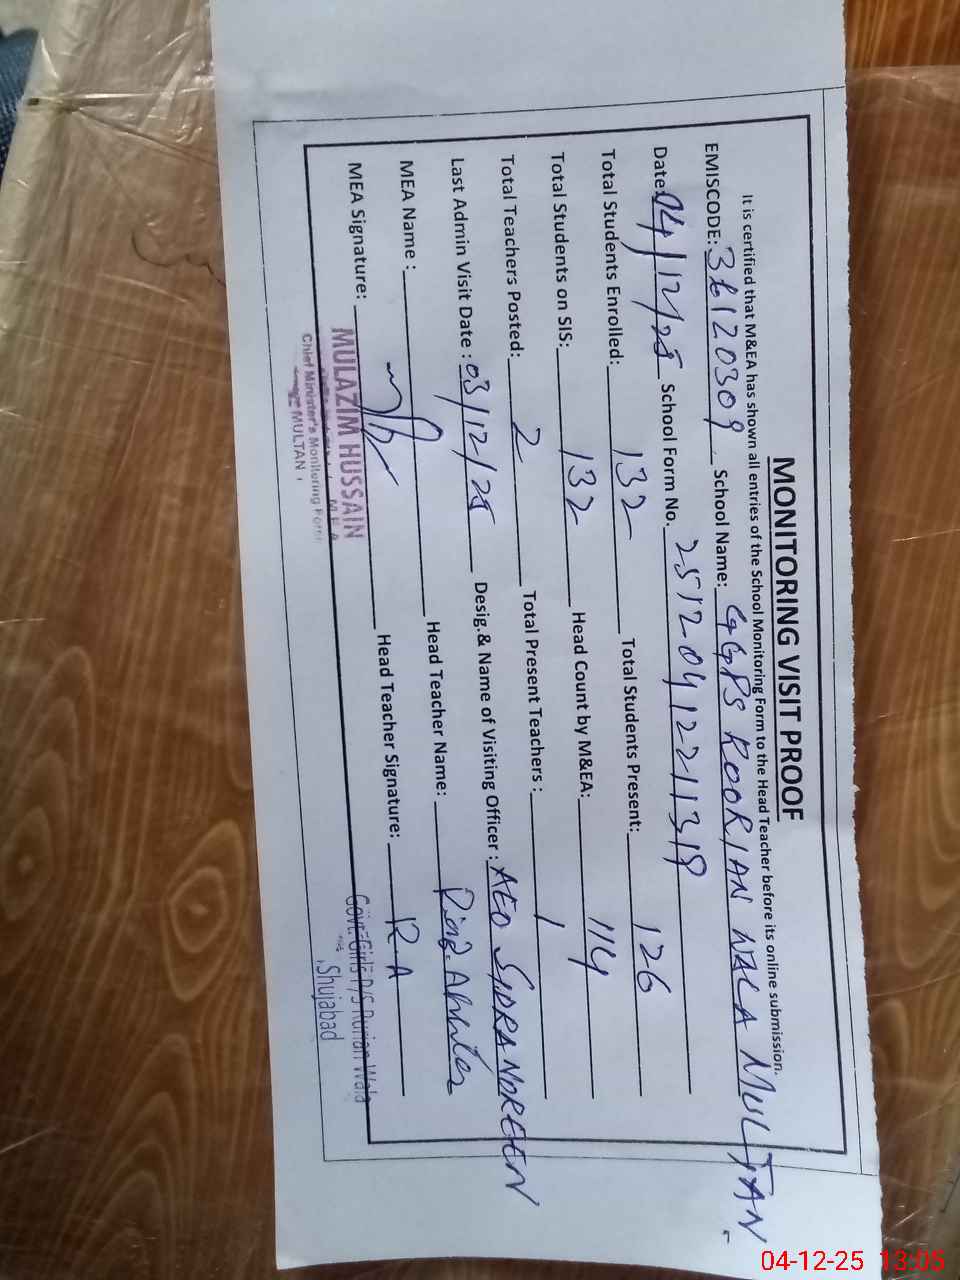 MONITORING VISIT PROOF
It is certified that M&EA has shown all entries of the School Monitoring Form to the Head Teacher before its online submission.
EMISCODE: 36120309 School Name: GGPS ROORIAN WALA MULTAN
Date: 04/12/25 School Form No. 2512041221319
Total Students Enrolled: 132 Total Students Present: 126
Total Students on SIS: 132 Head Count by M&EA: 114
Total Teachers Posted: 2 Total Present Teachers : 1
Last Admin Visit Date : 03/12/25 Desig.& Name of Visiting Officer : AEO SIDRA NOREEN
MEA Name : Head Teacher Name:
MEA Signature: Head Teacher Signature: R.A
MULAZIM HUSSAIN
M.E.A
Chief Minister's Monitoring Force
MULTAN
Govt: Girls P/S Rurian Wala
Shujabad
04-12-25 13:05